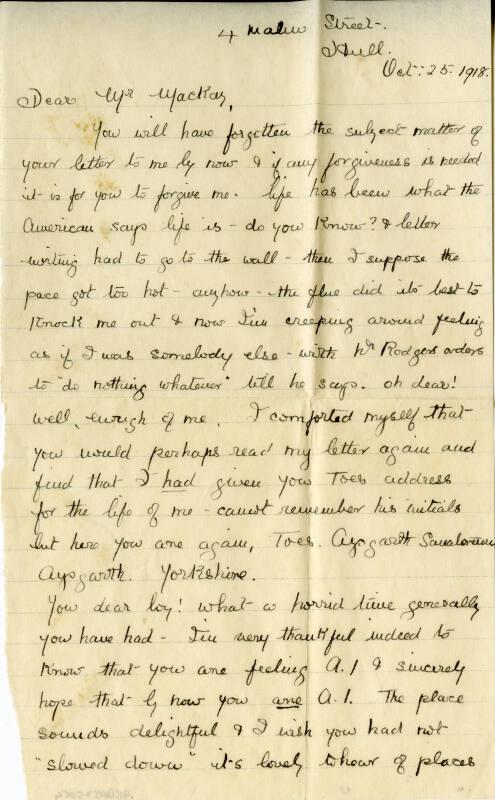 4 Malm Street.
Hull.
Oct: 25. 1918.
Dear Mr Mackay,
You will have forgotten the subject matter of
your letter to me by now & if any forgiveness is needed
it is for you to forgive me. life has been what the
American says life is - do you know? & letter
writing had to go to the wall - then I suppose the
pace got too hot - anyhow - the flue did its best to
knock me out & now I'm creeping around feeling
as if I was somebody else - with Dr Rodgers orders
to "do nothing whatever" till he says. oh dear!
well, enough of me. I comforted myself that
you would perhaps read my letter again and
find that I had given you Toes address
for the life of me - cannot remember his initials
but here you are again, Toes. Aysgarth Sanatorium
Aysgarth. Yorkshire.
You dear boy! what a horrid time generally
you have had - I'm very thankful indeed to
know that you are feeling A.1 & sincerely
hope that by now you are A.1. The place
sounds delightful & I wish you had not
"slowed down" it's lovely to hear of places